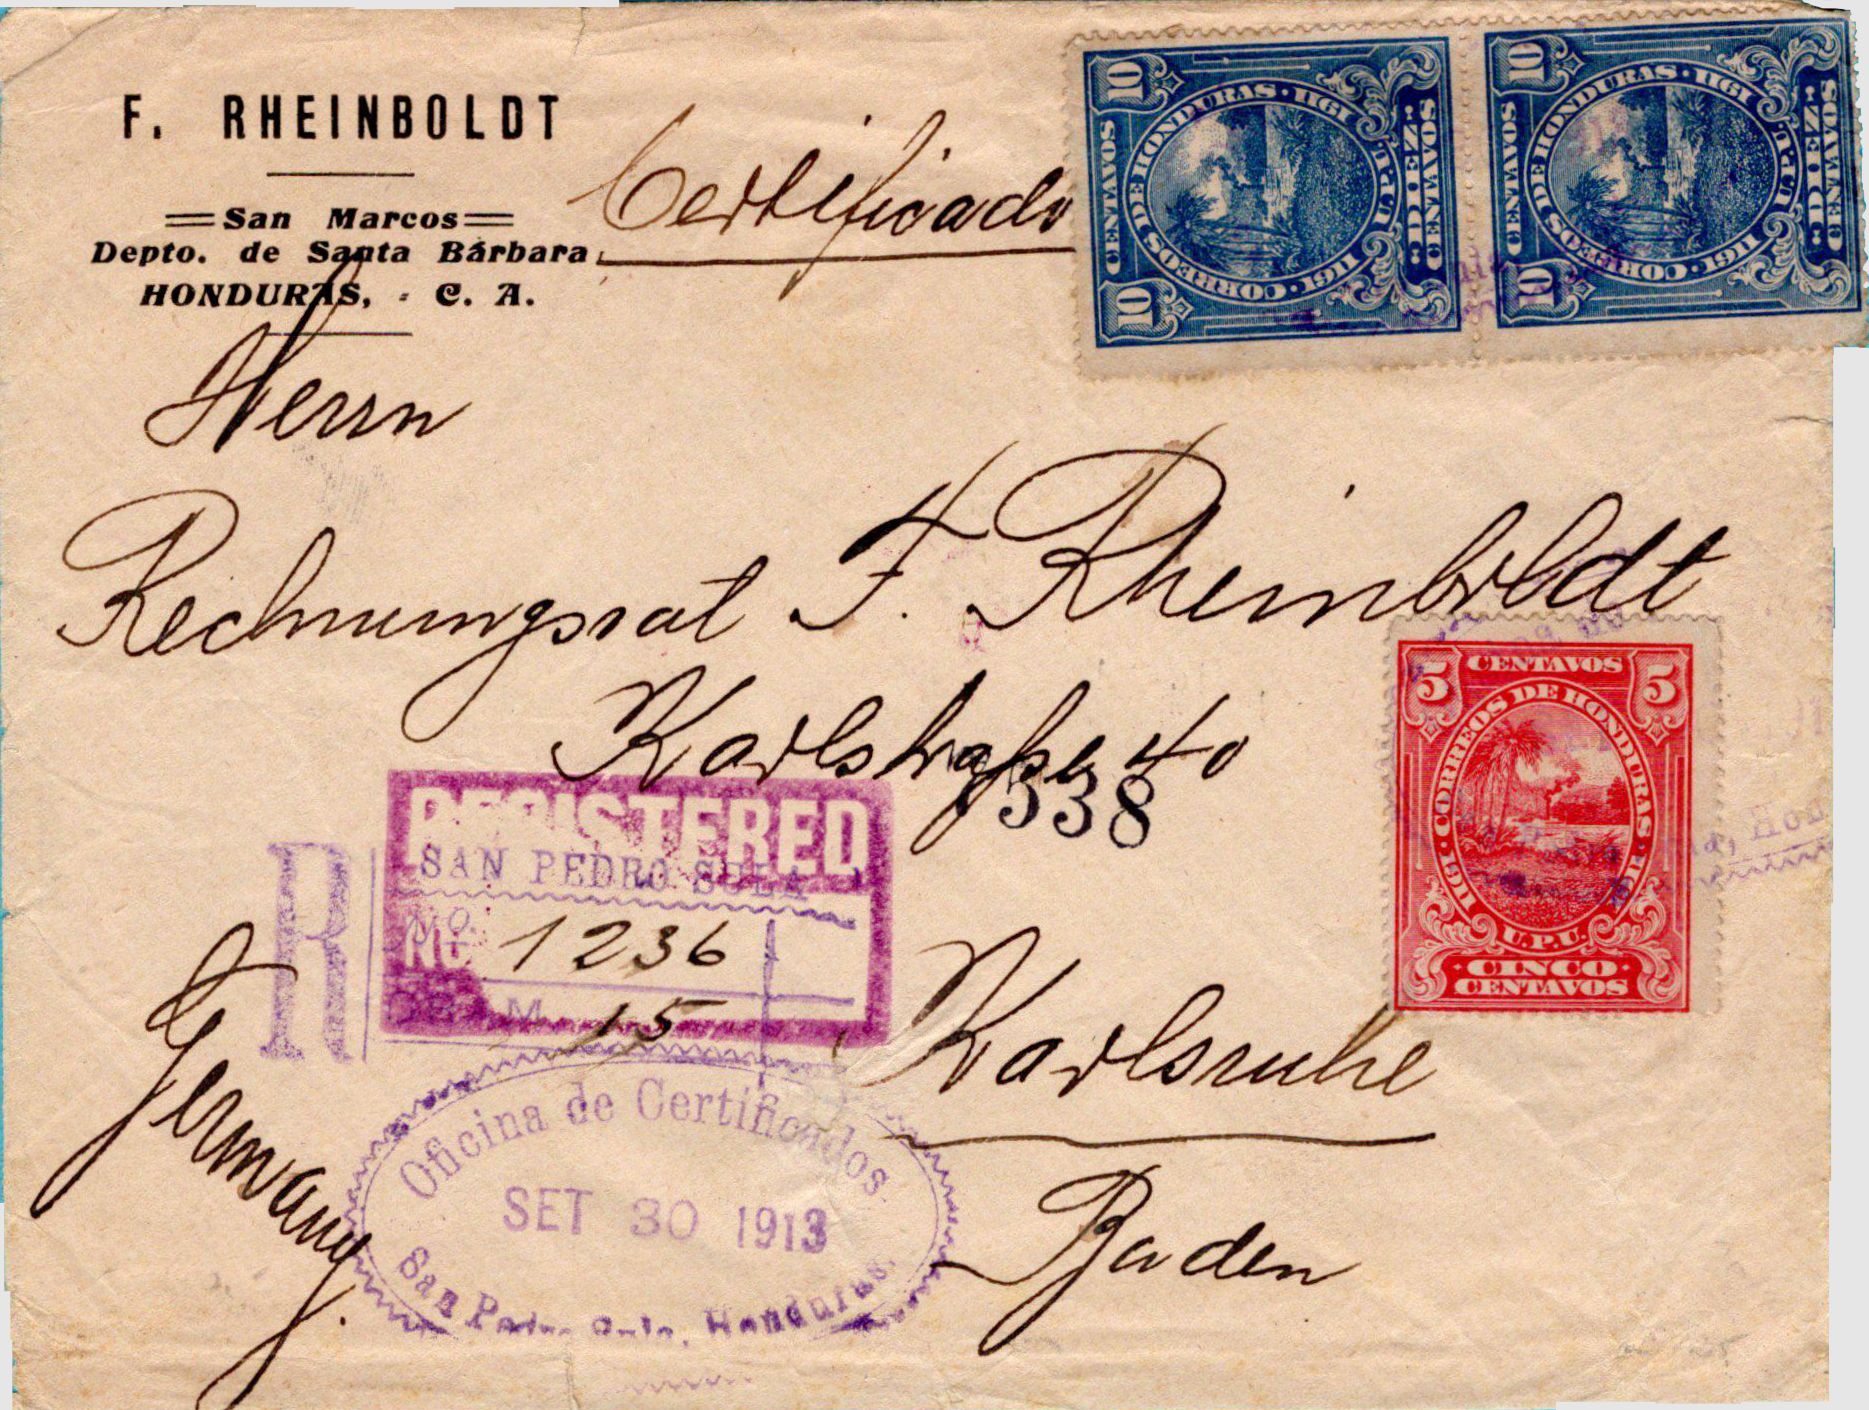 F. RHEINBOLDT
San Marcos
Depto. de Santa Bárbara
HONDURAS, - C. A.
Certificado
10 CENTAVOS 10
CORREOS DE HONDURAS · 1191 · U.P.U. · 1191 ·
DIEZ CENTAVOS
10 CENTAVOS 10
CORREOS DE HONDURAS · 1191 · U.P.U. · 1191 ·
DIEZ CENTAVOS
Herrn
Rechnungsrat F. Rheinboldt
Karlstraße 40
338
5 CENTAVOS 5
CORREOS DE HONDURAS
U.P.U.
CINCO
CENTAVOS
REGISTERED
R
SAN PEDRO SULA
No. 1236
15
Karlsruhe
Baden
Germany.
Oficina de Certificados.
SET 30 1913
San Pedro Sula, Honduras.